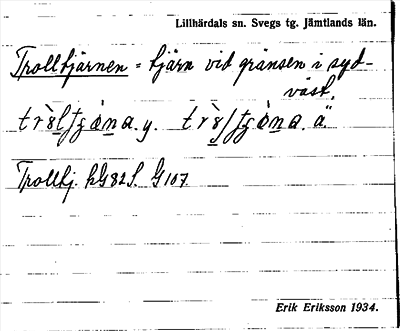 Lillhärdals sn. Svegs tg. Jämtlands län.
Trolltjärnen = tjärn vid gränsen i syd-
väst.
Trolltj. hG82S. G107.
Erik Eriksson 1934.